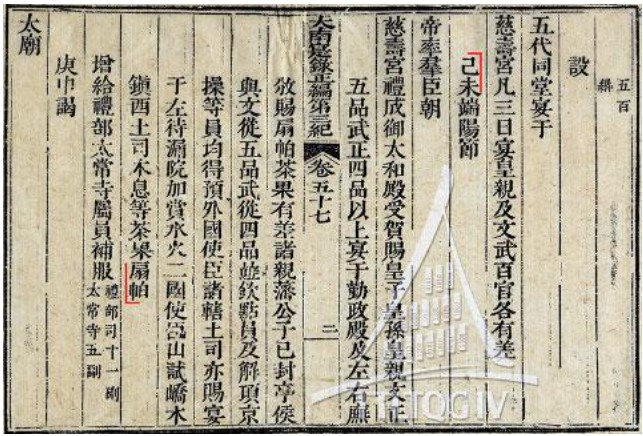 五百
緡
設
五代同堂宴于
慈壽宮凡三日宴皇親及文武百官各有差
己未端陽節
帝率羣臣朝
慈壽宮禮成御太和殿受賀賜皇子皇孫皇親文正
五品武正四品以上宴于勤政殿及左右廡
大南寔錄正編第三紀 卷五十七 二
賜扇帕茶果有差諸親藩公子已封亭侯
與文從五品武從四品欽點員及解項京
操等員均得預外國使臣諸轄土司亦賜宴
于左待漏院加賞水火二國使邑山試嶠木
鎮西土司木息等茶果扇帕
增給禮部太常寺屬員補服 禮部司十一副
太常寺五副
庚申謁
太廟
TQGIV